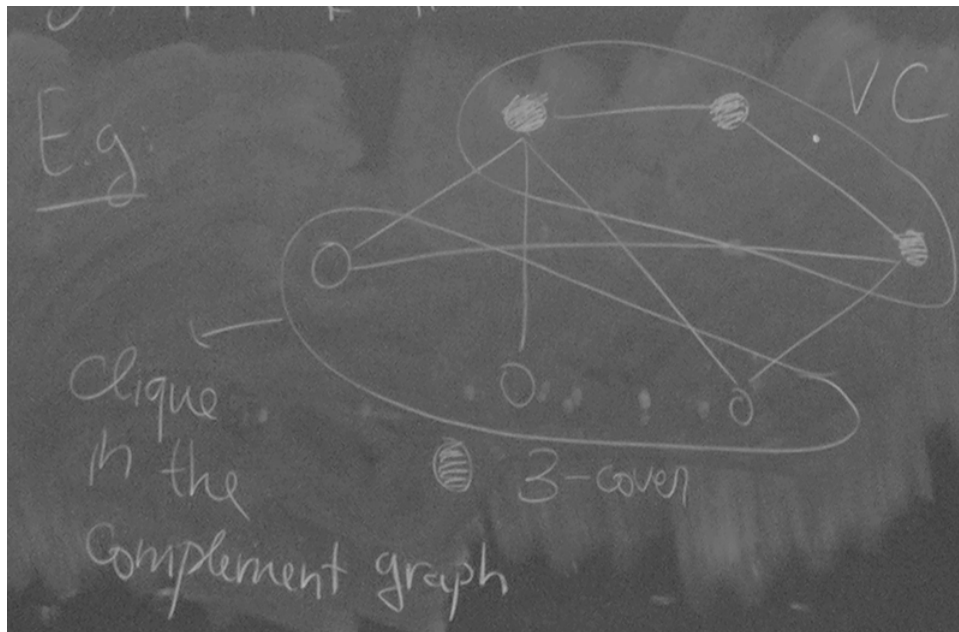 E.g:
VC
Clique
in the
Complement graph
3-cover